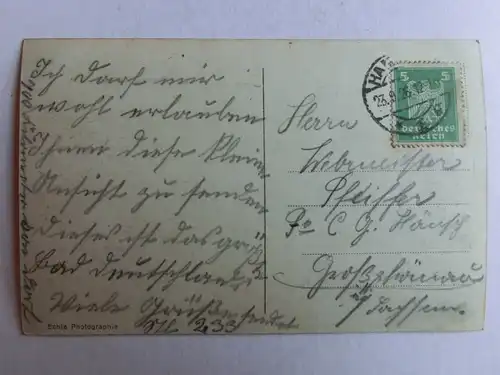 Ich darf mir
wohl erlauben
Ihnen diese kleine
Ansicht zu senden
dieses ist das größte
Bad Deutschlands
Viele Grüße sendet
Echte Photographie
233
HAM
23.8.26.12
5 5
Deutsches
Reich
Herrn
Webmeister
Pfeiffer
Fa C. G. Hänsch
Großschönau
i/ Sachsen